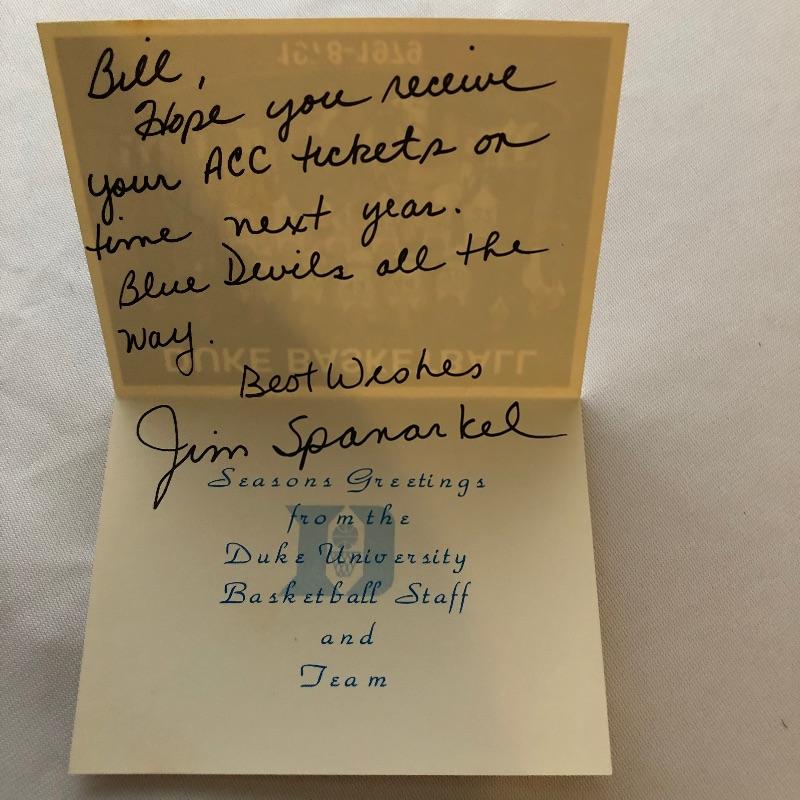 1978-1979
Bill,
Hope you receive
your ACC tickets on
time next year.
Blue Devils all the
way.
DUKE BASKETBALL
Best Wishes
Jim Spanarkel
Seasons Greetings
from the
Duke University
Basketball Staff
and
Team